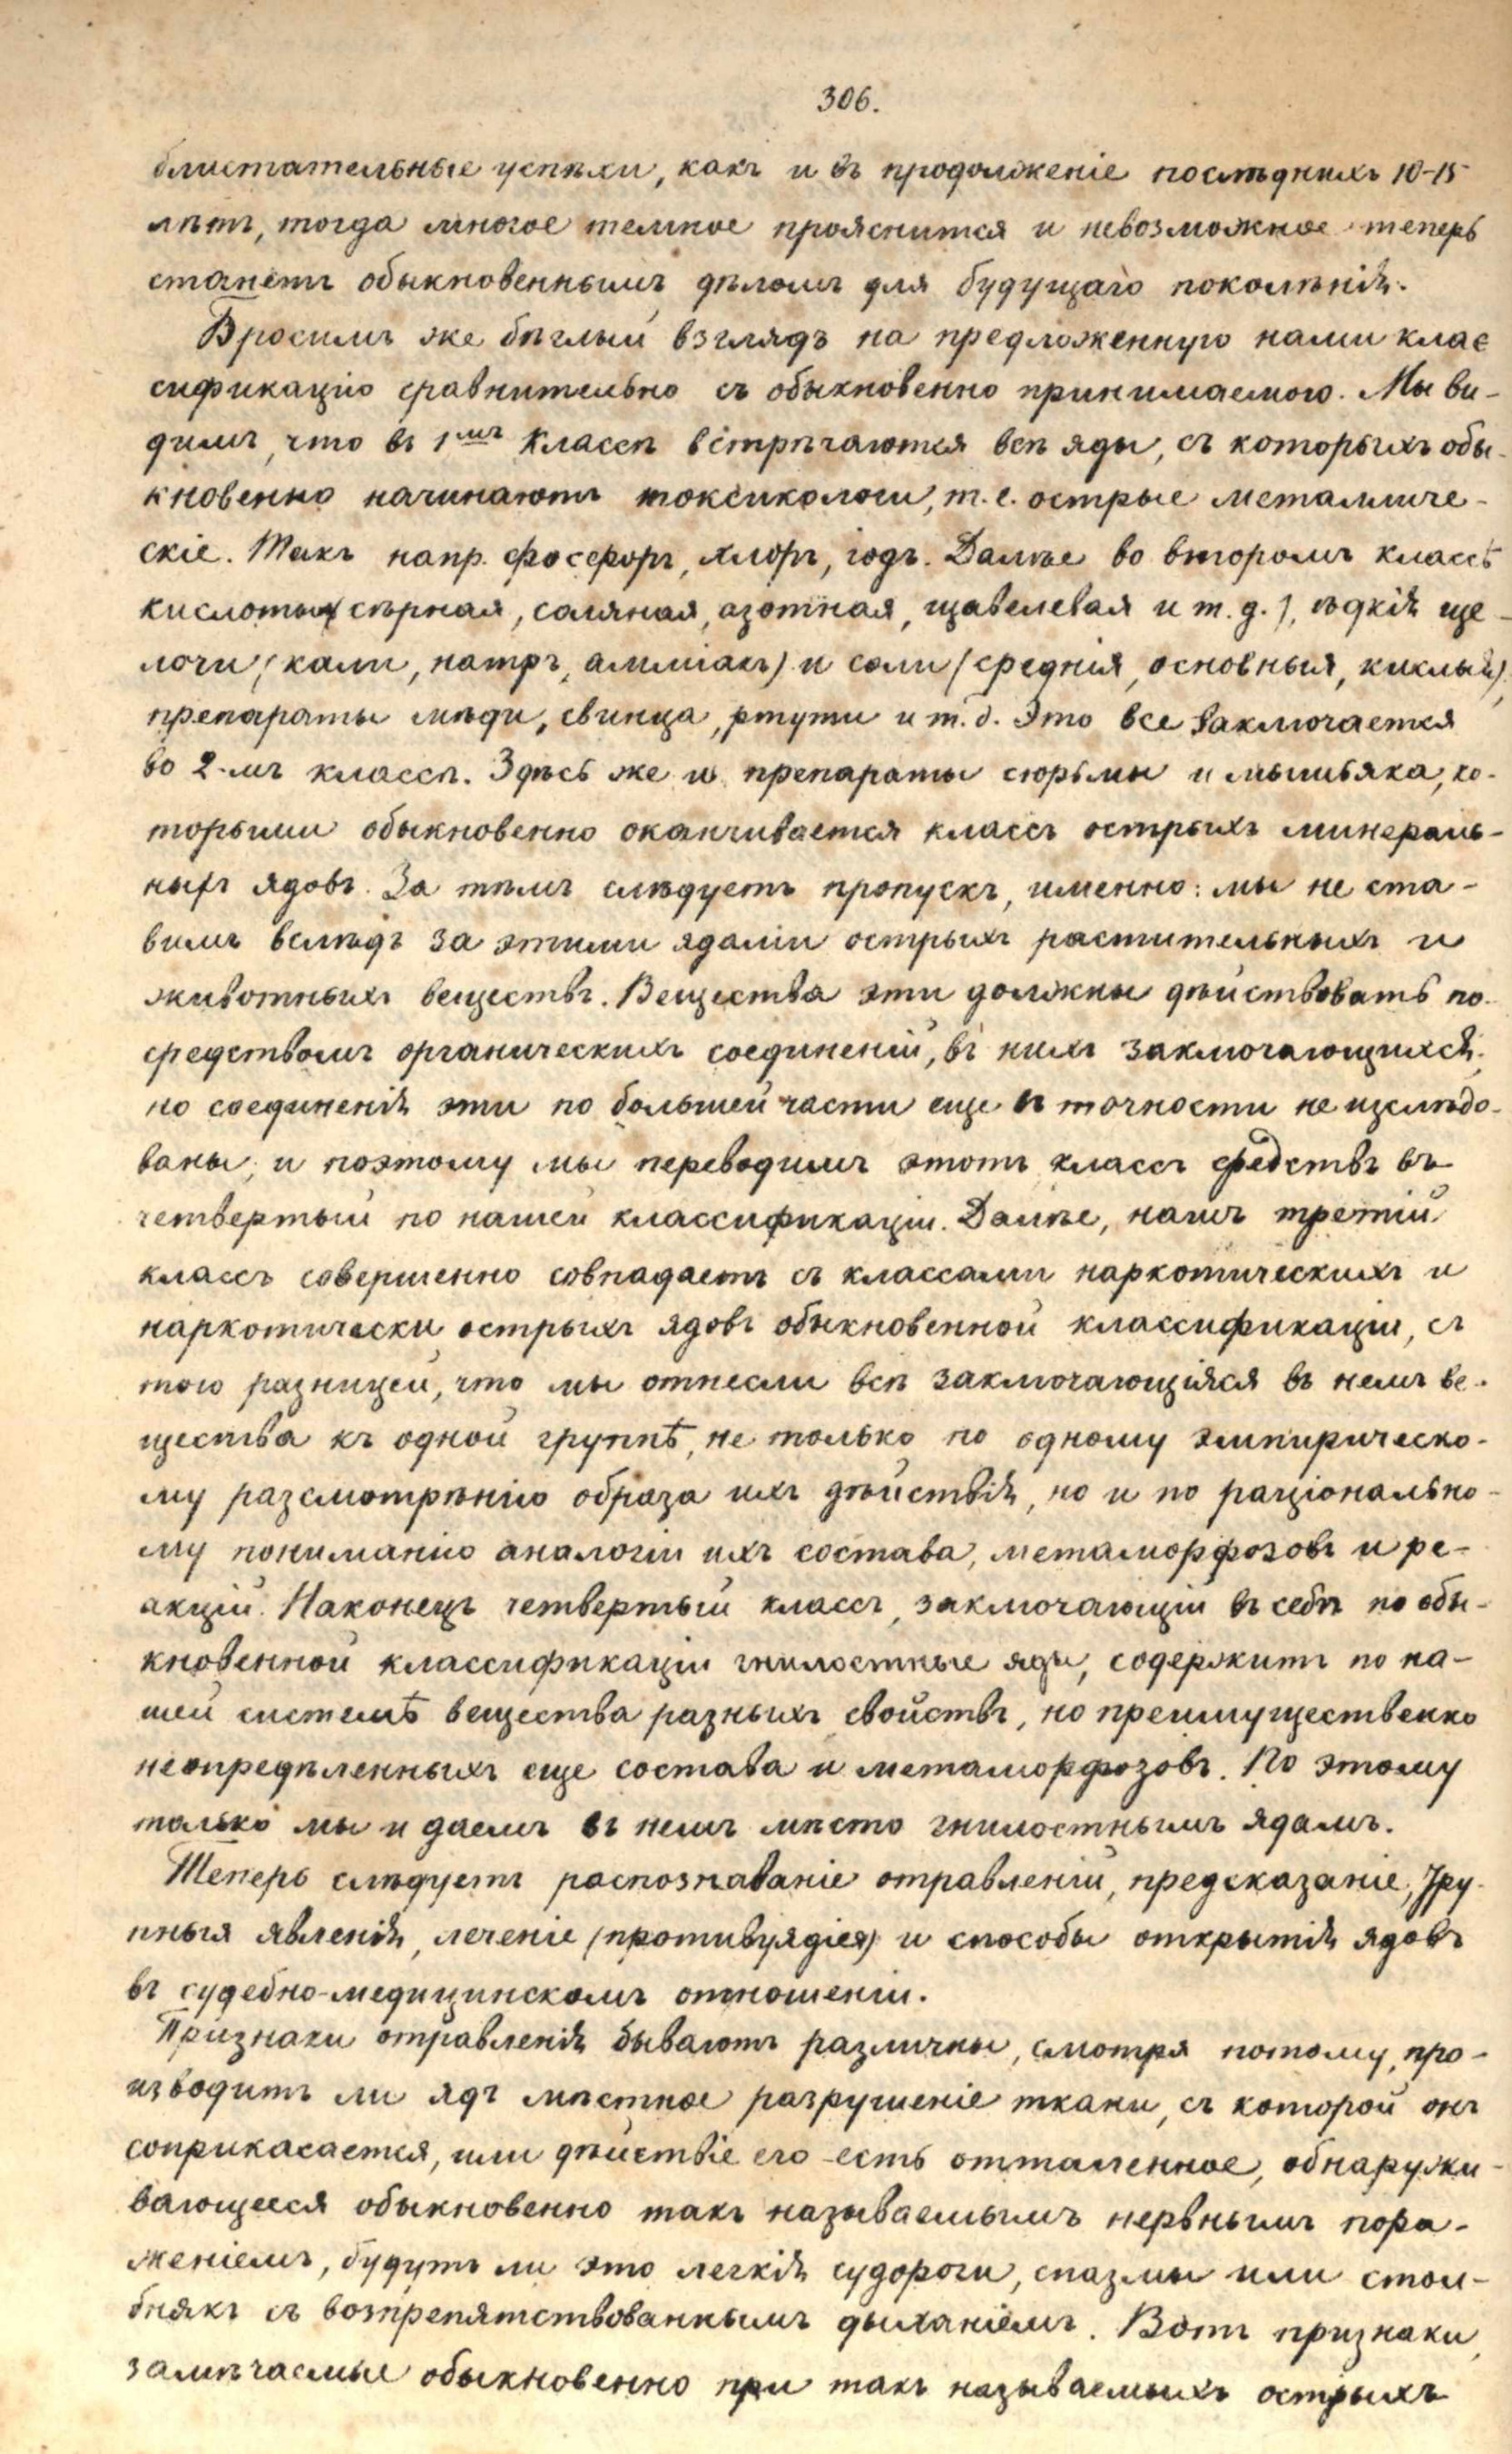 306.
блистательные успѣхи, какъ и въ продолженіе послѣднихъ 10-15
лѣтъ, тогда многое темное прояснится и невозможное теперь
станетъ обыкновеннымъ дѣломъ для будущаго поколѣнія.
Бросимъ же бѣглый взглядъ на предложенную нами клас
сификацію сравнительно съ обыкновенно принимаемою. Мы ви-
димъ, что въ 1мъ классѣ встрѣчаются всѣ яды, съ которыхъ обы-
кновенно начинаютъ токсикологи, т.е. острые металличе-
скіе. Такъ напр. фосфоръ, хлоръ, іодъ. Далѣе во второмъ классѣ
кислоты (сѣрная, соляная, азотная, щавелевая и т.д.), ѣдкія ще-
лочи (кали, натръ, амміакъ) и соли (среднія, основныя, кислыя),
препараты мѣди, свинца, ртути и т.д. Это все заключается
во 2-мъ классѣ. Здѣсь же и препараты сюрьмы и мышьяка, ко-
торыми обыкновенно оканчивается классъ острыхъ минераль-
ныхъ ядовъ. За тѣмъ слѣдуетъ пропускъ, именно: мы не ста-
вимъ вслѣдъ за этими ядами острыхъ растительныхъ и
животныхъ веществъ. Вещества эти должны дѣйствовать по-
средствомъ органическихъ соединеній, въ нихъ заключающихся;
но соединенія эти по большей части еще въ точности не изслѣдо-
ваны; и поэтому мы переводимъ этотъ классъ средствъ въ
четвертый по нашей классификаціи. Далѣе, нашъ третій
классъ совершенно совпадаетъ съ классами наркотическихъ и
наркотически острыхъ ядовъ обыкновенной классификаціи, съ
тою разницей, что мы отнесли всѣ заключающіяся въ немъ ве-
щества къ одной группѣ, не только по одному эмпирическо-
му разсмотрѣнію образа ихъ дѣйствія, но и по раціонально-
му пониманію аналогіи ихъ состава, метаморфозовъ и ре-
акцій. Наконецъ четвертый классъ, заключающій въ себѣ по обы-
кновенной классификаціи гнилостные яды, содержитъ по на-
шей системѣ вещества разныхъ свойствъ, но преимущественно
неопредѣленныхъ еще состава и метаморфозовъ. По этому
только мы и даемъ въ немъ мѣсто гнилостнымъ ядамъ.
Теперь слѣдуетъ распознаваніе отравленій, предсказаніе, тру-
пныя явленія, леченіе (противуядія) и способы открытія ядовъ
въ судебно-медицинскомъ отношеніи.
Признаки отравленія бываютъ различны, смотря потому, про-
изводитъ ли ядъ мѣстное разрушеніе ткани, съ которой онъ
соприкасается, или дѣйствіе его есть отталенное, обнаружи-
вающееся обыкновенно такъ называемымъ нервнымъ пора-
женіемъ, будутъ ли это легкія судороги, спазмы или стол-
бнякъ съ вотрепятствованнымъ дыханіемъ. Вотъ признаки,
замѣчаемые обыкновенно при такъ называемыхъ острыхъ